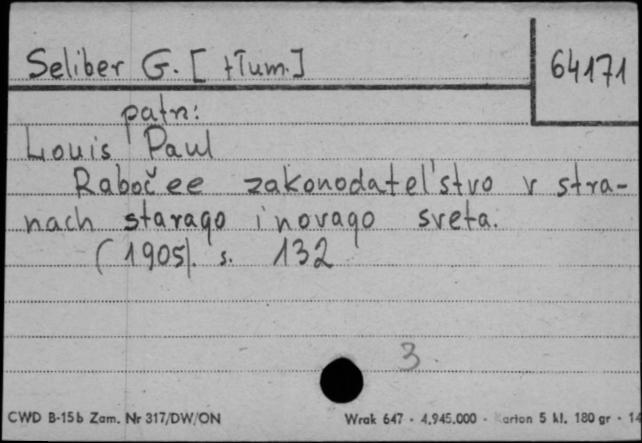 Seliber G. [tłum.]
64171
patrz:
Louis Paul
Rabočee zakonodatel'stvo v stra-
nach starago i novago sveta.
(1905). s. 132
3.
CWD B-15b Zam. Nr 317/DW/ON
Wrak 647 - 4.945.000 - arton 5 kl. 180 gr - 14